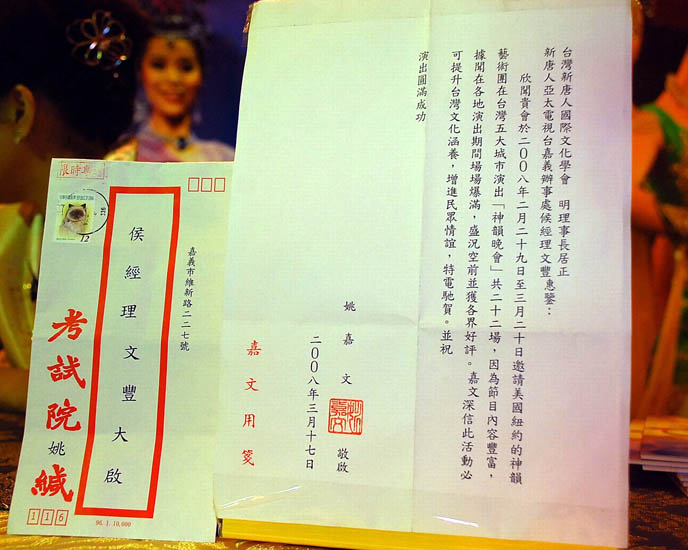 台灣新唐人國際文化學會　明理事長居正
新唐人亞太電視台嘉義辦事處侯經理文豐惠鑒：
欣聞貴會於二00八年二月二十九日至三月二十日邀請美國紐約的神韻
藝術團在台灣五大城市演出「神韻晚會」共二十二場，因為節目內容豐富，
據聞在各地演出期間場場爆滿，盛況空前並獲各界好評。嘉文深信此活動必
可提升台灣文化涵養，增進民眾情誼，特電馳賀。並祝
演出圓滿成功
姚嘉文
敬啟
二00八年三月十七日
嘉文用箋
限時專送
嘉義市維新路二二七號
侯經理文豐大啟
考試院姚緘
116
96.1.10,000
12